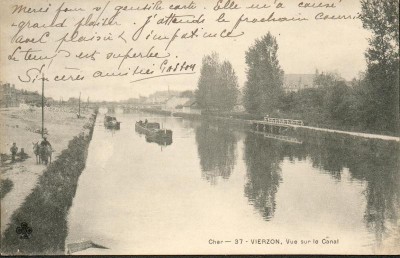 Merci pour s/ gentille carte. Elle m'a causé
grand plaisir. J'attends le prochain courrier
avec plaisir & impatience.
Le temps est superbe.
Sincères amitiés Gaston
Cher — 37 - VIERZON, Vue sur le Canal